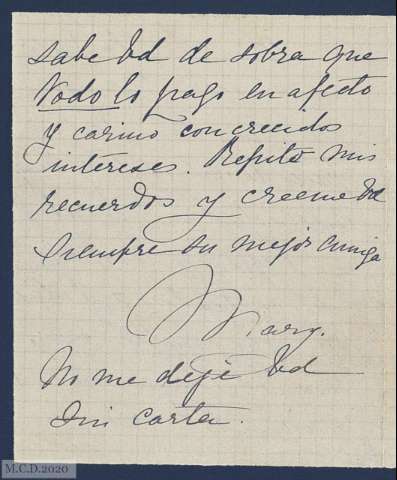 sabe Vd de sobra que
Todo lo pago en afecto
y cariño con crecidos
intereses. Repito mis
recuerdos y creeme Vd
siempre su mejor amiga
Mary.
No me deje Vd
sin carta.
M.C.D.2020